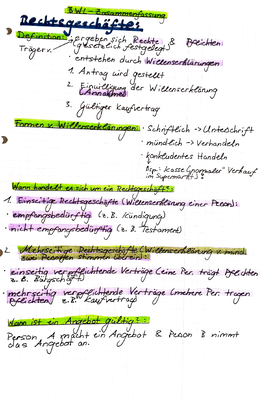 BWL - Zusammenfassung
Rechtsgeschäfte:
Definition: · ergeben sich Rechte & Pflichten
Träger v. (gesetzlich festgelegt)
· entstehen durch Willenserklärungen
1. Antrag wird gestellt
2. Einwilligung der Willenserklärung
(Annahme)
3. Gültiger Kaufvertrag
Formen v. Willenserklärungen: · Schriftlich → Unterschrift
· mündlich → Verhandeln
· konkludentes Handeln
Bsp.: Kasse ("normaler" Verkauf
im Supermarkt)
Wann handelt es sich um ein Rechtsgeschäft?:
1. Einseitige Rechtsgeschäfte (Willenserklärung einer Person):
· empfangsbedürftig (z.B. Kündigung)
· nicht empfangsbedürftig (z.B. Testament)
2. Mehrseitige Rechtsgeschäfte (Willenserklärung v. mind.
zwei Personen stimmen überein):
· einseitig verpflichtende Verträge (eine Per. trägt Pflichten
z.B. Bürgschaft)
· mehrseitig verpflichtende Verträge (mehrere Per. tragen
Pflichten, z.B. Kaufvertrag)
Wann ist ein Angebot gültig?:
Person A macht ein Angebot & Person B nimmt
das Angebot an.